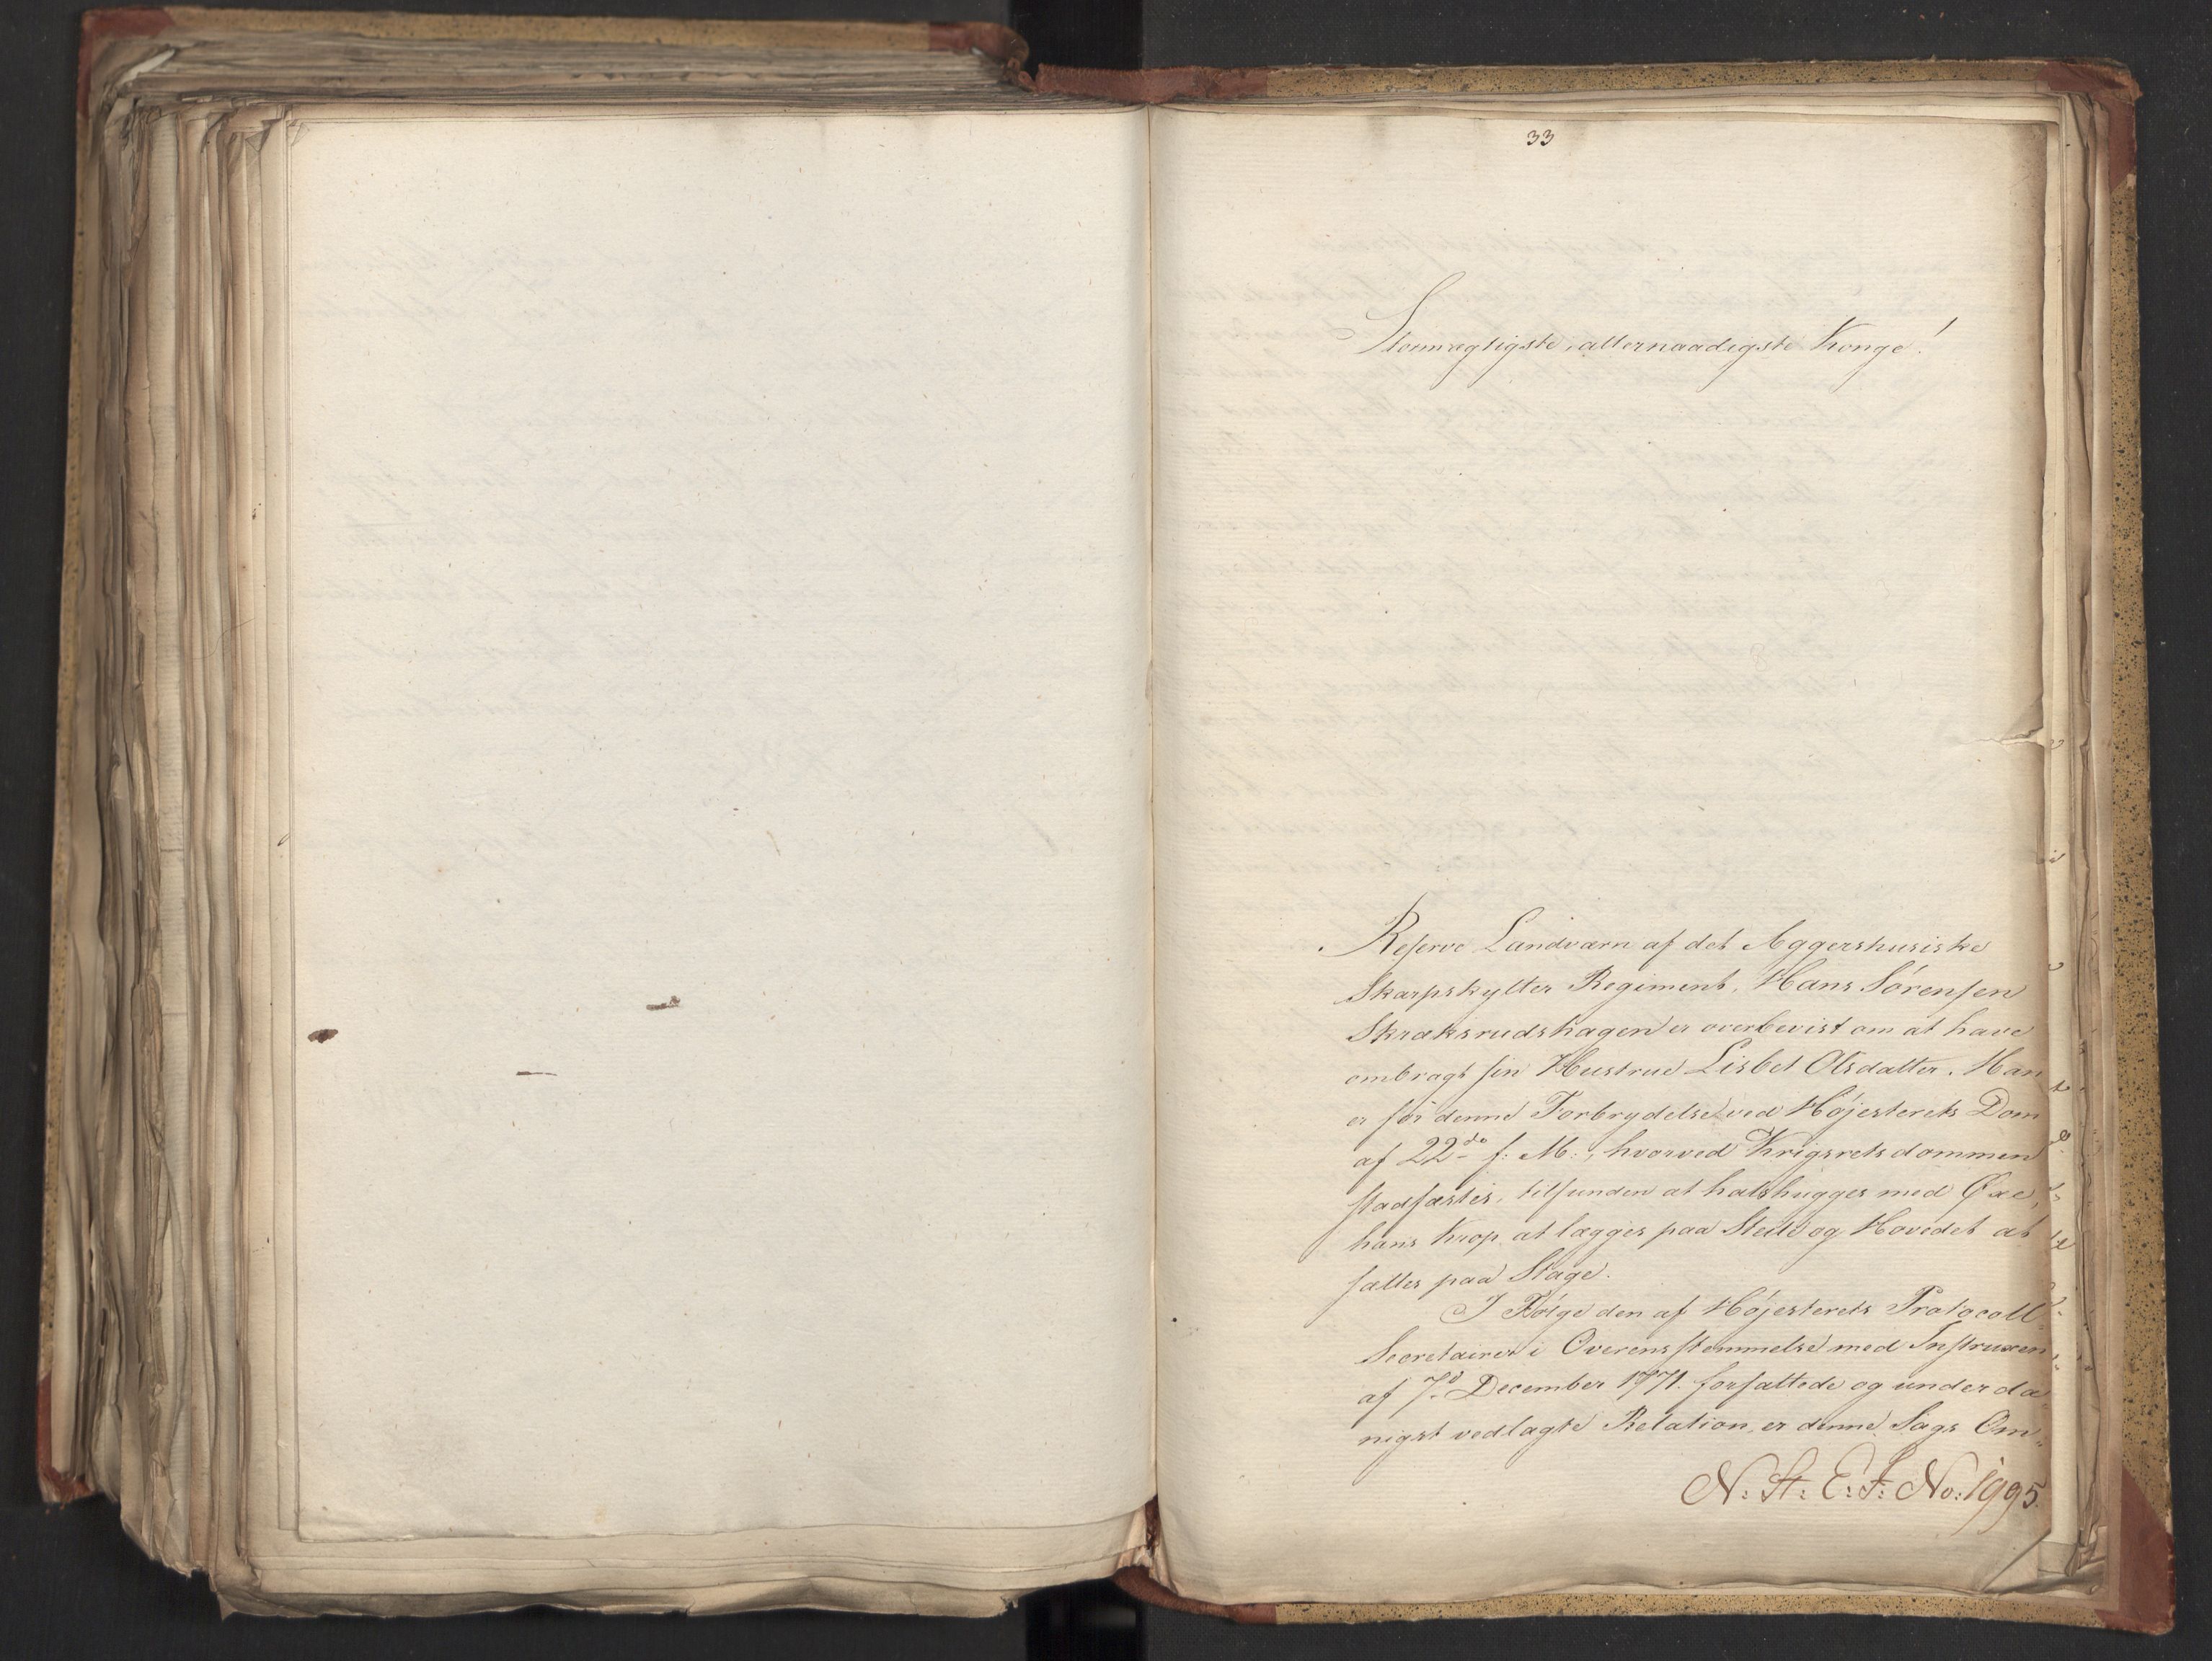 33
Stormægtigste, allernaadigste Konge!
Reserve Landværn af det Aggershusiske
Skarpskytter Regiment, Hans Sörensen
Skraksrudshagen er overbevist om at have
ombragt sin Hustrue Lisbet Olsdatter. Han
er for denne Forbrydelse ved Höjesterets Dom
af 22de f: M:, hvorved Krigsretsdommen
stadfæstes, tilfunden at halshugges med Öxe,
hans Krop at lægges paa Steile og Hovedet at
sættes paa Stage.
I Fölge den af Höjesterets Protocoll-
Secretairer i Overensstemmelse med Instruxen
af 7de December 1771 forfattede og underda-
nigst vedlagte Relation, er denne Sags Om-
N: St: E: J: No: 1995.